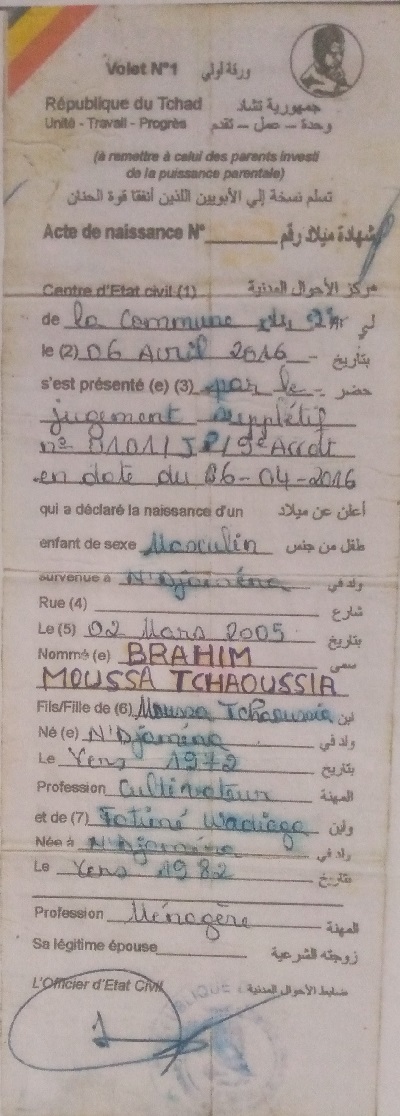 Volet N°1 ورقة اولي
République du Tchad جمهورية تشاد
Unité - Travail - Progrès وحدة - عمل - تقدم
(à remettre à celui des parents investi
de la puissance parentale)
تسلم نسخة إلي الأبويين اللذين أنفقا قوة الحنان
Acte de naissance N° شهادة ميلاد رقم
Centre d'Etat civil (1) مركز الأحوال المدنية
de la Commune du لي
le (2) 06 Avril 2016 بتاريخ
s'est présenté (e) (3) par le حضر
jugement supplétif
n° 8101/JP/9e Arrdt
en date du 06-04-2016
qui a déclaré la naissance d'un أعلن عن ميلاد
enfant de sexe Masculin طفل من جنس
survenue à N'Djaména ولد في
Rue (4) شارع
Le (5) 02 Mars 2005 بتاريخ
Nommé (e) BRAHIM سمي
MOUSSA TCHAOUSSIA
Fils/Fille de (6) Moussa Tchaoussia ابن
Né (e) N'Djaména ولد في
Le Vers 1972 بتاريخ
Profession Cultivateur المهنة
et de (7) Fatimé Wadiega وابن
Née à N'Djaména ولد في
Le Vers 1982 بتاريخ
Profession Ménagère المهنة
Sa légitime épouse زوجته الشرعية
L'Officier d'Etat Civil ضابط الأحوال المدنية